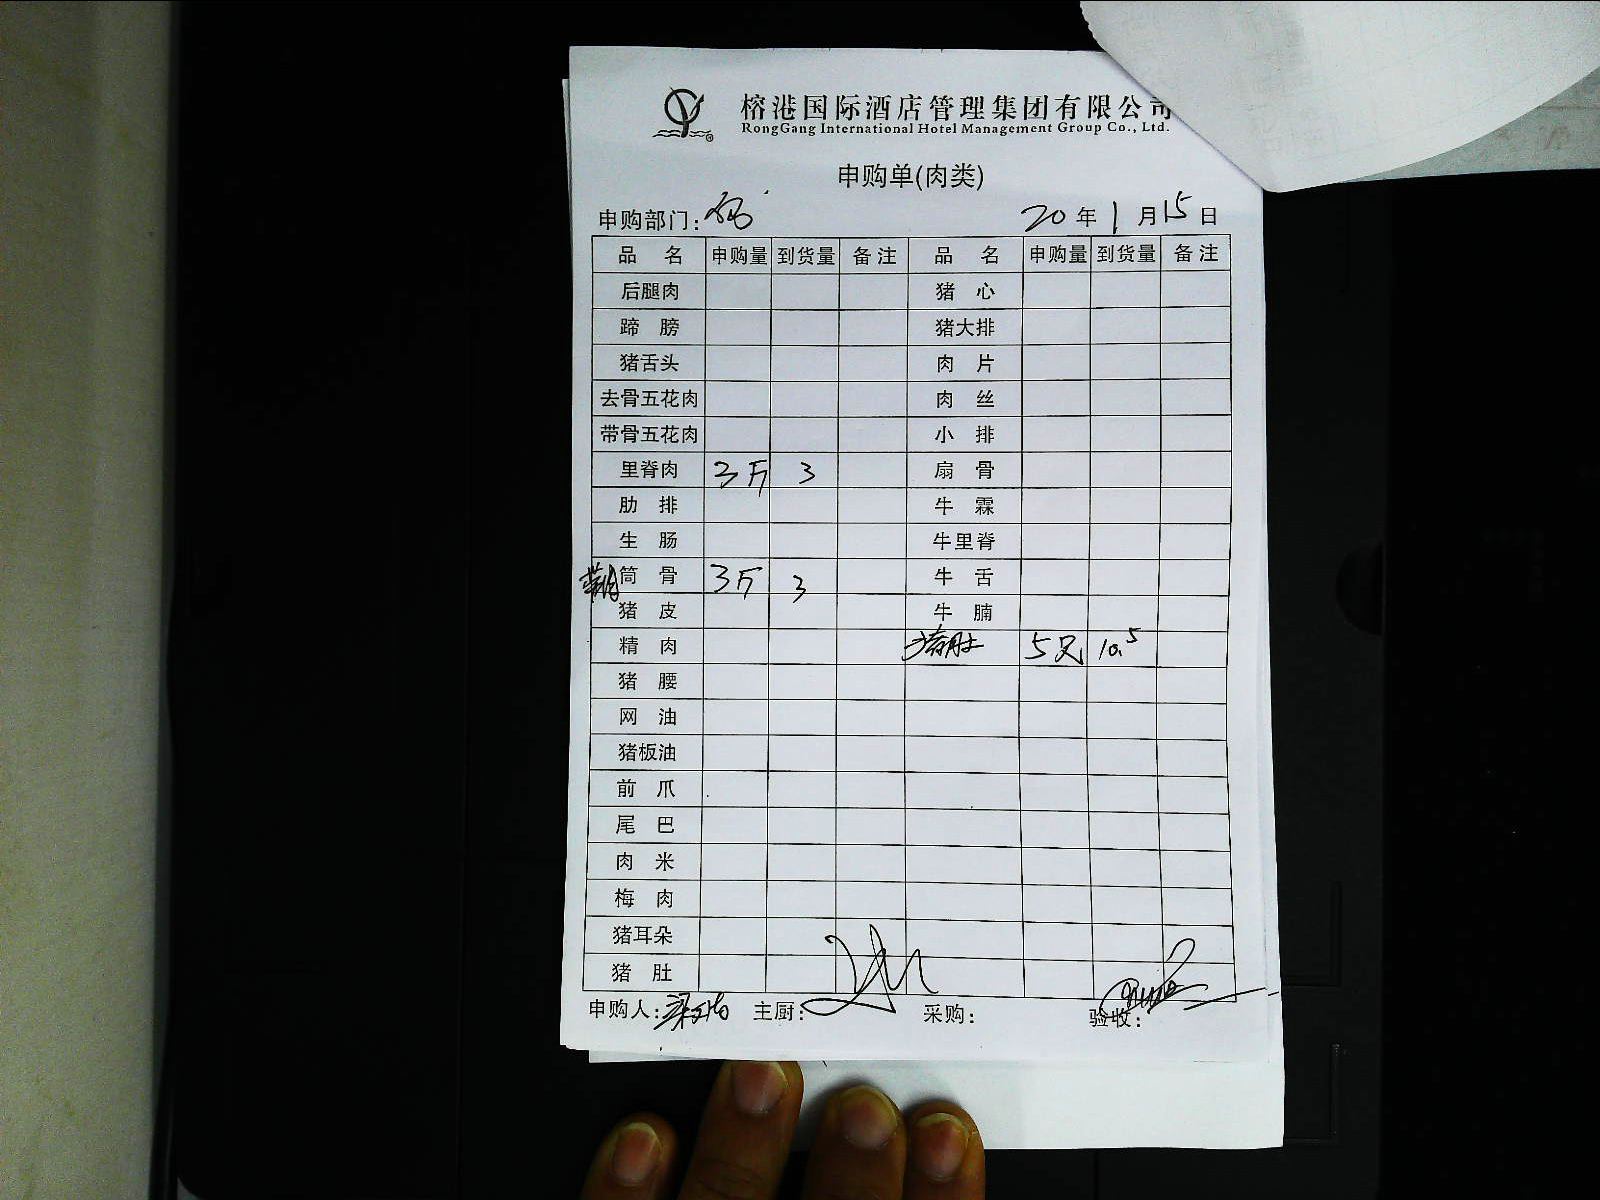 榕港国际酒店管理集团有限公司
RongGang International Hotel Management Group Co., Ltd.
申购单(肉类)
申购部门: 20年1月15日
品名 申购量 到货量 备注 品名 申购量 到货量 备注
后腿肉 猪心
蹄膀 猪大排
猪舌头 肉片
去骨五花肉 肉丝
带骨五花肉 小排
里脊肉 3斤 3 扇骨
肋排 牛霖
生肠 牛里脊
筒骨 3斤 3 牛舌
猪皮 牛腩
精肉 猪肚 5只 10.5
猪腰
网油
猪板油
前爪
尾巴
肉米
梅肉
猪耳朵
猪肚
申购人: 主厨: 采购: 验收: